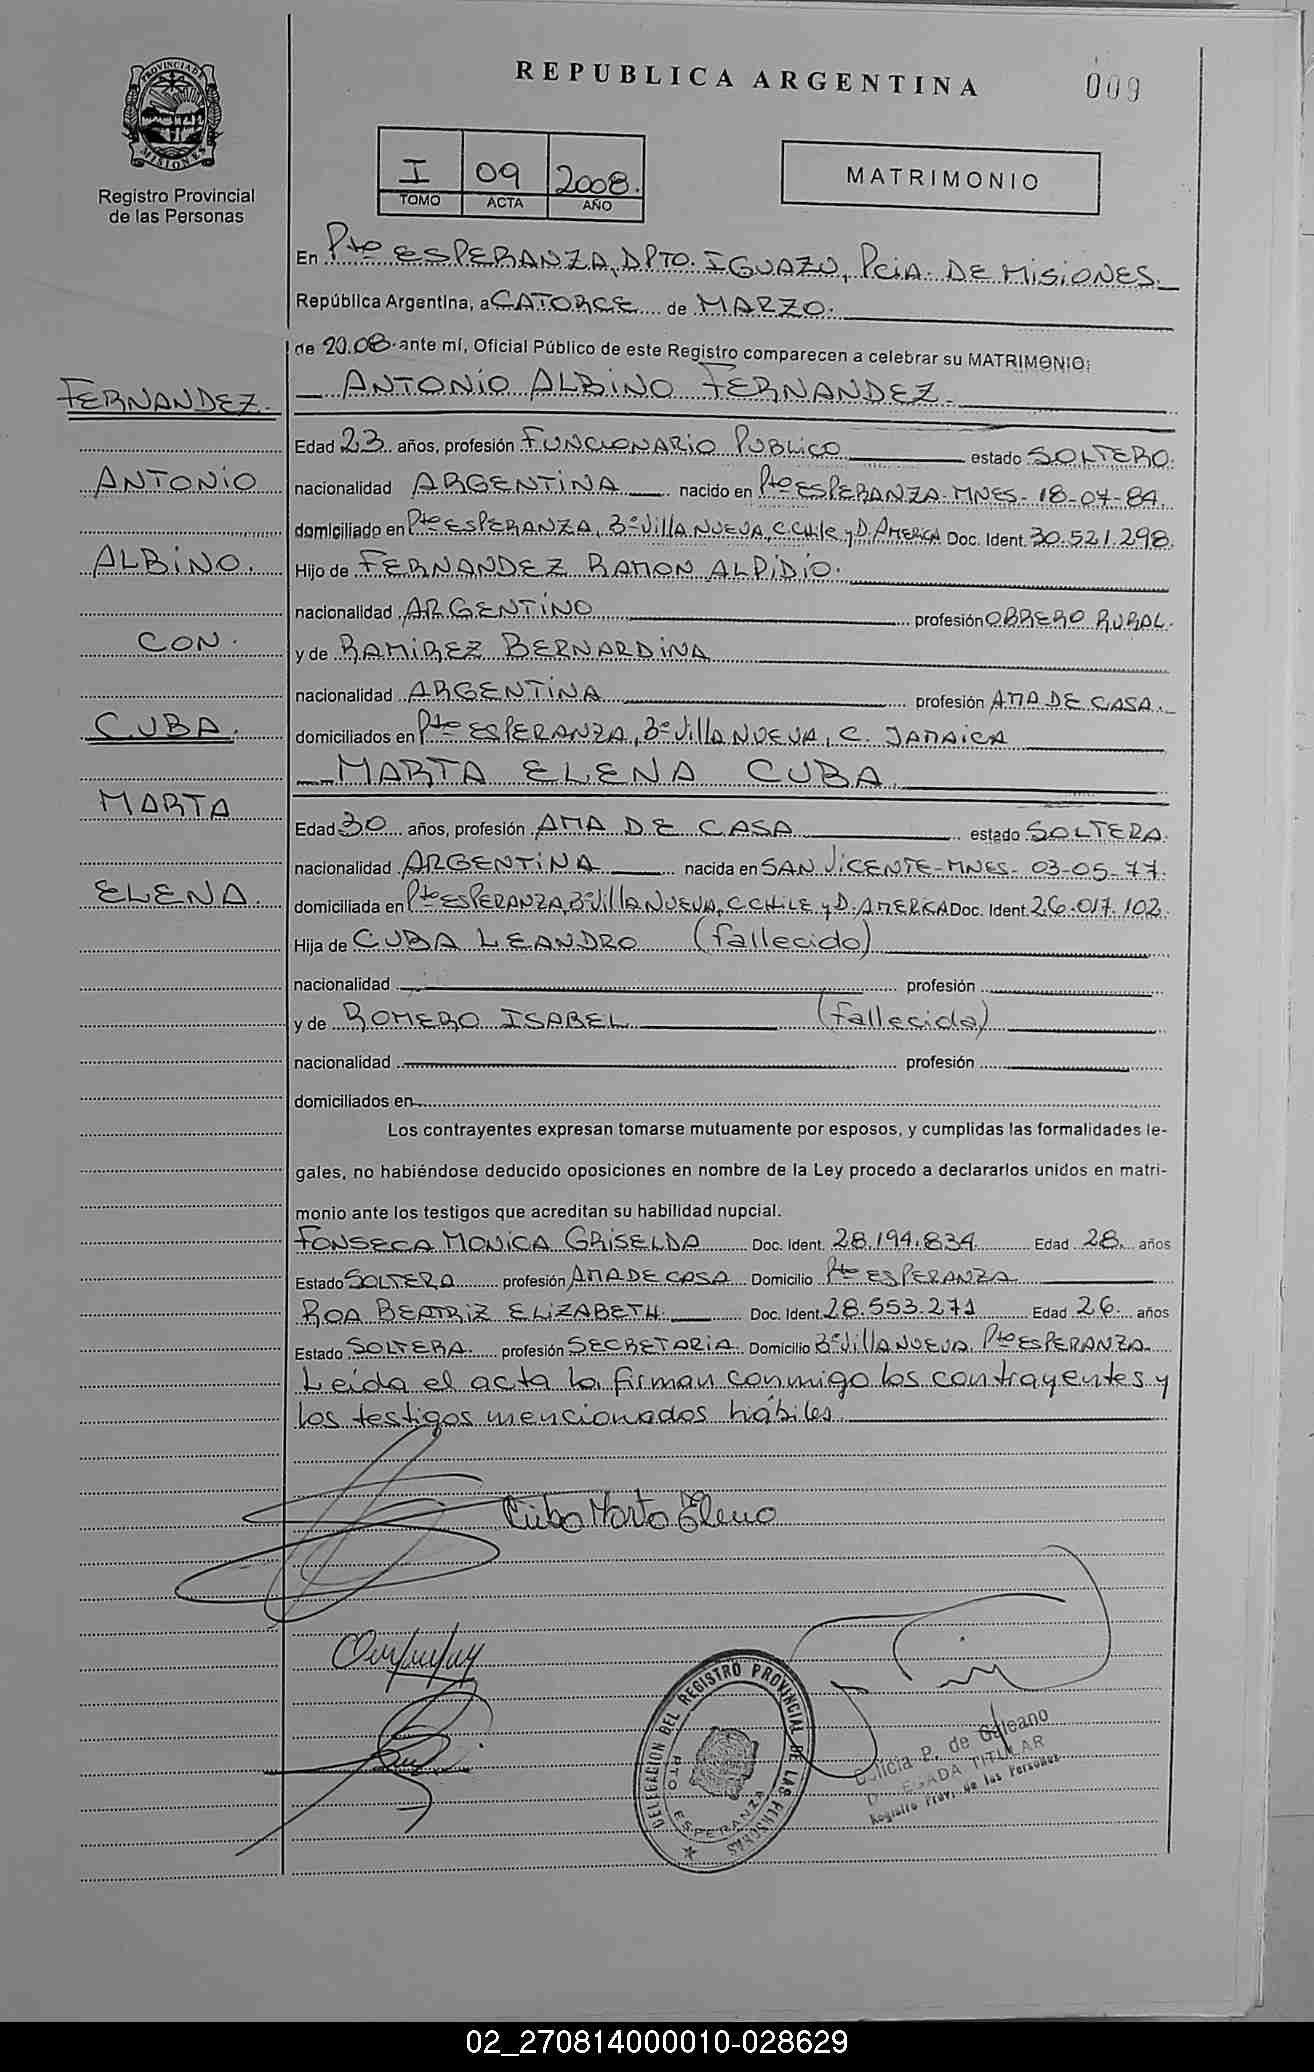 PROVINCIA DE
MISIONES
Registro Provincial
de las Personas
REPUBLICA ARGENTINA
009
I 09 2008.
TOMO ACTA AÑO
MATRIMONIO
En Pto ESPERANZA, DPTO. IGUAZU, PciA. DE MISIONES.
República Argentina, a CATORCE de MARZO.
de 2008. ante mí, Oficial Público de este Registro comparecen a celebrar su MATRIMONIO:
ANTONIO ALBINO FERNANDEZ.
FERNANDEZ.
Edad 23 años, profesión FUNCIONARIO PUBLICO estado SOLTERO.
ANTONIO
nacionalidad ARGENTINA nacido en Pto ESPERANZA-MNES- 18-07-84.
domiciliado en Pto ESPERANZA, Bº Villa NUEVA, C. CHile y D. AMERICA Doc. Ident. 30.521.298.
ALBINO.
Hijo de FERNANDEZ RAMON ALPIDIO.
nacionalidad ARGENTINO profesión OBRERO RURAL.
CON.
y de RAMIREZ BERNARDINA
nacionalidad ARGENTINA profesión AMA DE CASA.
CUBA.
domiciliados en Pto ESPERANZA, Bº Villa NUEVA, C. JAMAICA
MARTA ELENA CUBA.
MARTA
Edad 30 años, profesión AMA DE CASA estado SOLTERA.
nacionalidad ARGENTINA nacida en SAN VICENTE-MNES- 03-05-77.
ELENA.
domiciliada en Pto ESPERANZA, Bº Villa NUEVA, C. CHILE y D. AMERICA Doc. Ident. 26.017.102.
Hija de CUBA LEANDRO (fallecido)
nacionalidad profesión
y de ROMERO ISABEL (fallecida)
nacionalidad profesión
domiciliados en
Los contrayentes expresan tomarse mutuamente por esposos, y cumplidas las formalidades le-
gales, no habiéndose deducido oposiciones en nombre de la Ley procedo a declararlos unidos en matri-
monio ante los testigos que acreditan su habilidad nupcial.
FONSECA MONICA GRISELDA Doc. Ident. 28.194.834 Edad 28 años
Estado SOLTERA profesión AMA DE CASA Domicilio Pto ESPERANZA
ROA BEATRIZ ELIZABETH. Doc. Ident. 28.553.271 Edad 26 años
Estado SOLTERA profesión SECRETARIA Domicilio Bº Villa NUEVA Pto ESPERANZA.
Leida el acta la firman conmigo los contrayentes y
los testigos mencionados hábiles
Cuba Marta Elena
DELEGACION DEL REGISTRO PROVINCIAL DE LAS PERSONAS
PTO ESPERANZA
P. de Galeano
DELEGADA TITULAR
Registro Prov. de las Personas
02_270814000010-028629